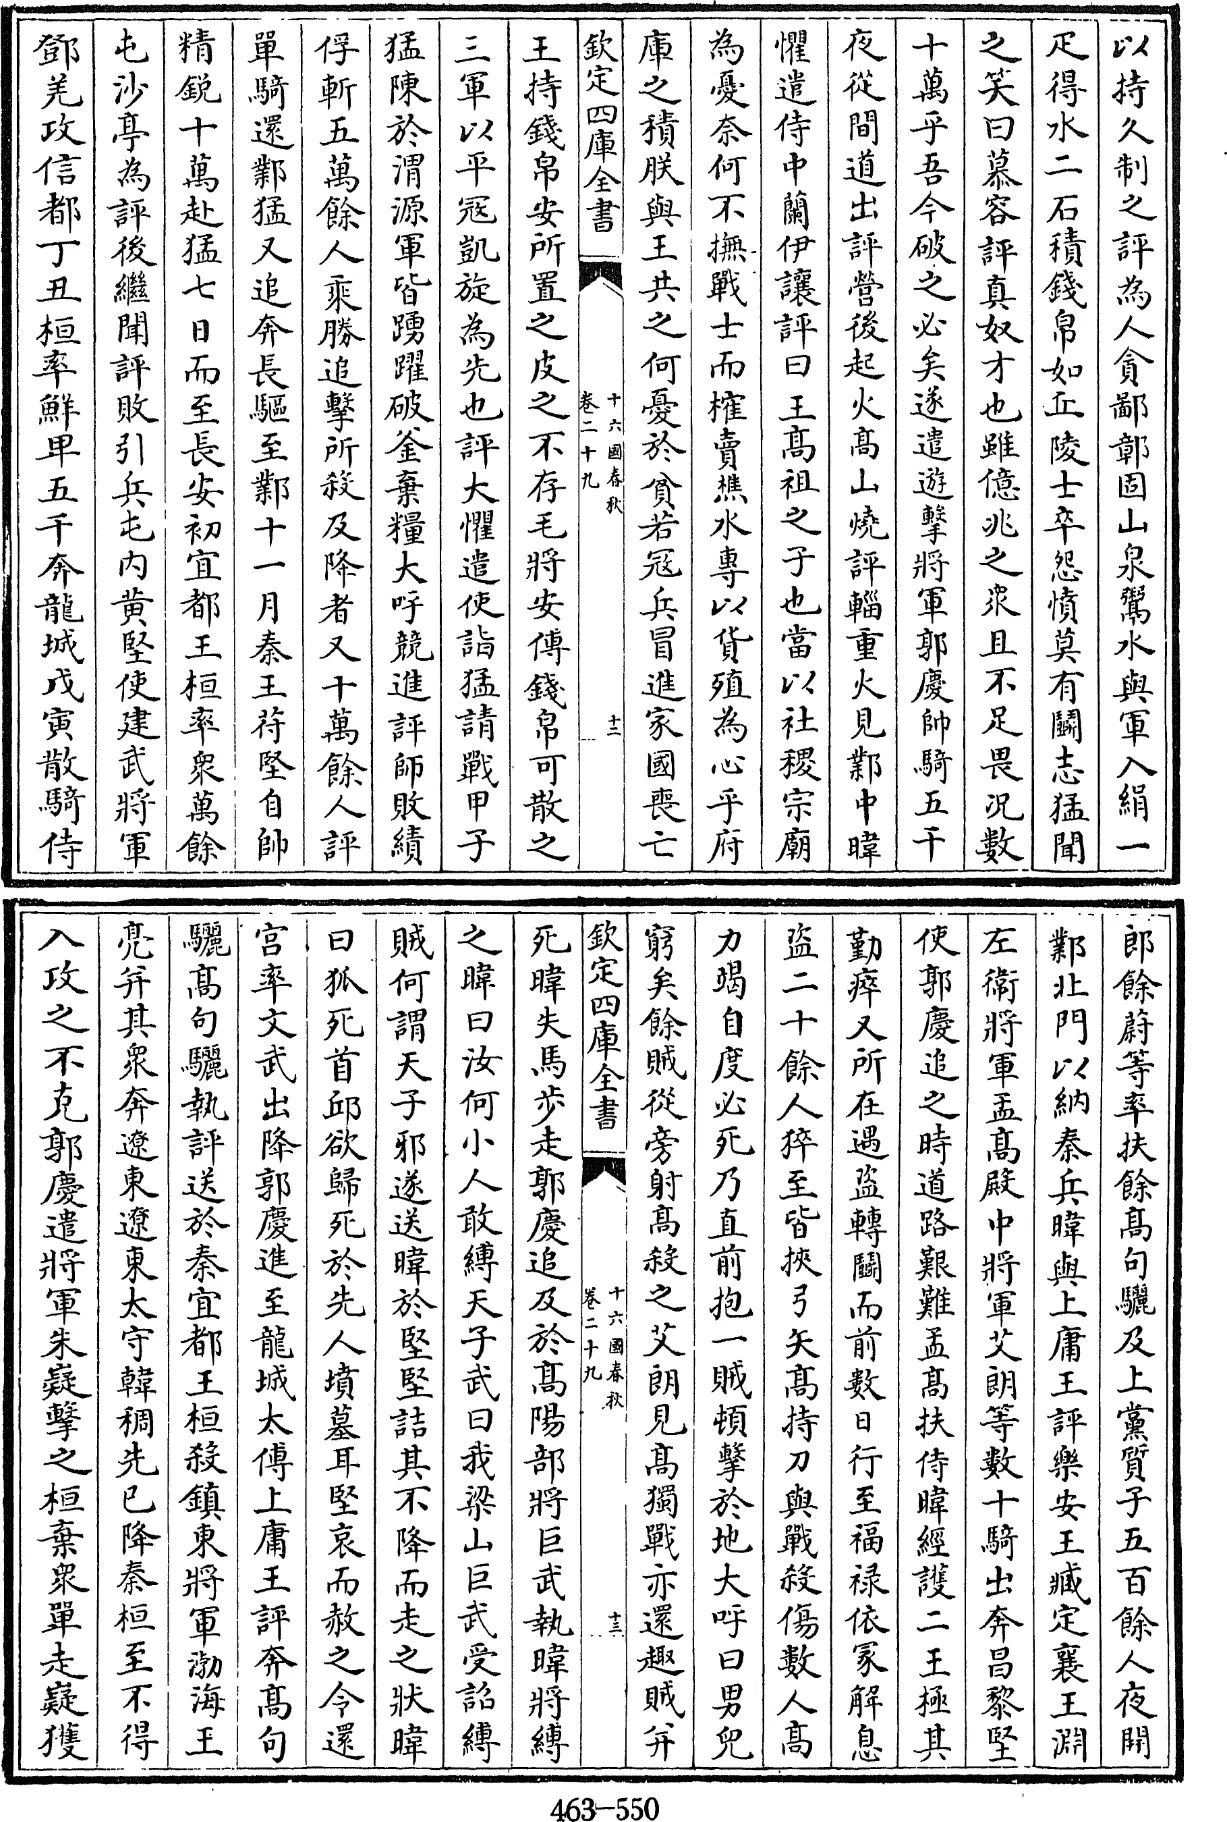 以持久制之評為人貪鄙鄣固山泉鬻水與軍入絹一
疋得水二石積錢帛如丘陵士卒怨憤莫有鬭志猛聞
之笑曰慕容評真奴才也雖億兆之衆且不足畏況數
十萬乎吾今破之必矣遂遣遊擊將軍郭慶帥騎五千
夜從間道出評營後起火高山燒評輜重火見鄴中暐
懼遣侍中蘭伊讓評曰王高祖之子也當以社稷宗廟
為憂奈何不撫戰士而榷賣樵水專以貨殖為心乎府
庫之積朕與王共之何憂於貧若冦兵冒進家國喪亡
欽定四庫全書
十六國春秋
卷二十九
十二
王持錢帛安所置之皮之不存毛將安傅錢帛可散之
三軍以平冦凱旋為先也評大懼遣使詣猛請戰甲子
猛陳於渭源軍皆踴躍破釜棄糧大呼競進評師敗績
俘斬五萬餘人乘勝追擊所殺及降者又十萬餘人評
單騎還鄴猛又追奔長驅至鄴十一月秦王苻堅自帥
精鋭十萬赴猛七日而至長安初宜都王桓率衆萬餘
屯沙亭為評後繼聞評敗引兵屯内黄堅使建武將軍
鄧羌攻信都丁丑桓率鮮卑五千奔龍城戊寅散騎侍
郎餘蔚等率扶餘高句驪及上黨質子五百餘人夜開
鄴北門以納秦兵暐與上庸王評樂安王臧定襄王淵
左衛將軍孟高殿中將軍艾朗等數十騎出奔昌黎堅
使郭慶追之時道路艱難孟髙扶侍暐經護二王極其
勤瘁又所在遇盗轉鬭而前數日行至福禄依冢解息
盗二十餘人猝至皆挾弓矢髙持刀與戰殺傷數人高
力竭自度必死乃直前抱一賊頓擊於地大呼曰男兒
窮矣餘賊從旁射高殺之艾朗見高獨戰亦還趣賊并
欽定四庫全書
十六國春秋
卷二十九
十三
死暐失馬步走郭慶追及於高陽部將巨武執暐將縛
之暐曰汝何小人敢縛天子武曰我梁山巨武受詔縛
賊何謂天子邪遂送暐於堅堅詰其不降而走之狀暐
曰狐死首邱欲歸死於先人墳墓耳堅哀而赦之令還
宫率文武出降郭慶進至龍城太傅上庸王評奔高句
驪高句驪執評送於秦宜都王桓殺鎮東將軍渤海王
亮并其衆奔遼東遼東太守韓稠先已降秦桓至不得
入攻之不克郭慶遣將軍朱嶷擊之桓棄衆單走嶷獲
463-550